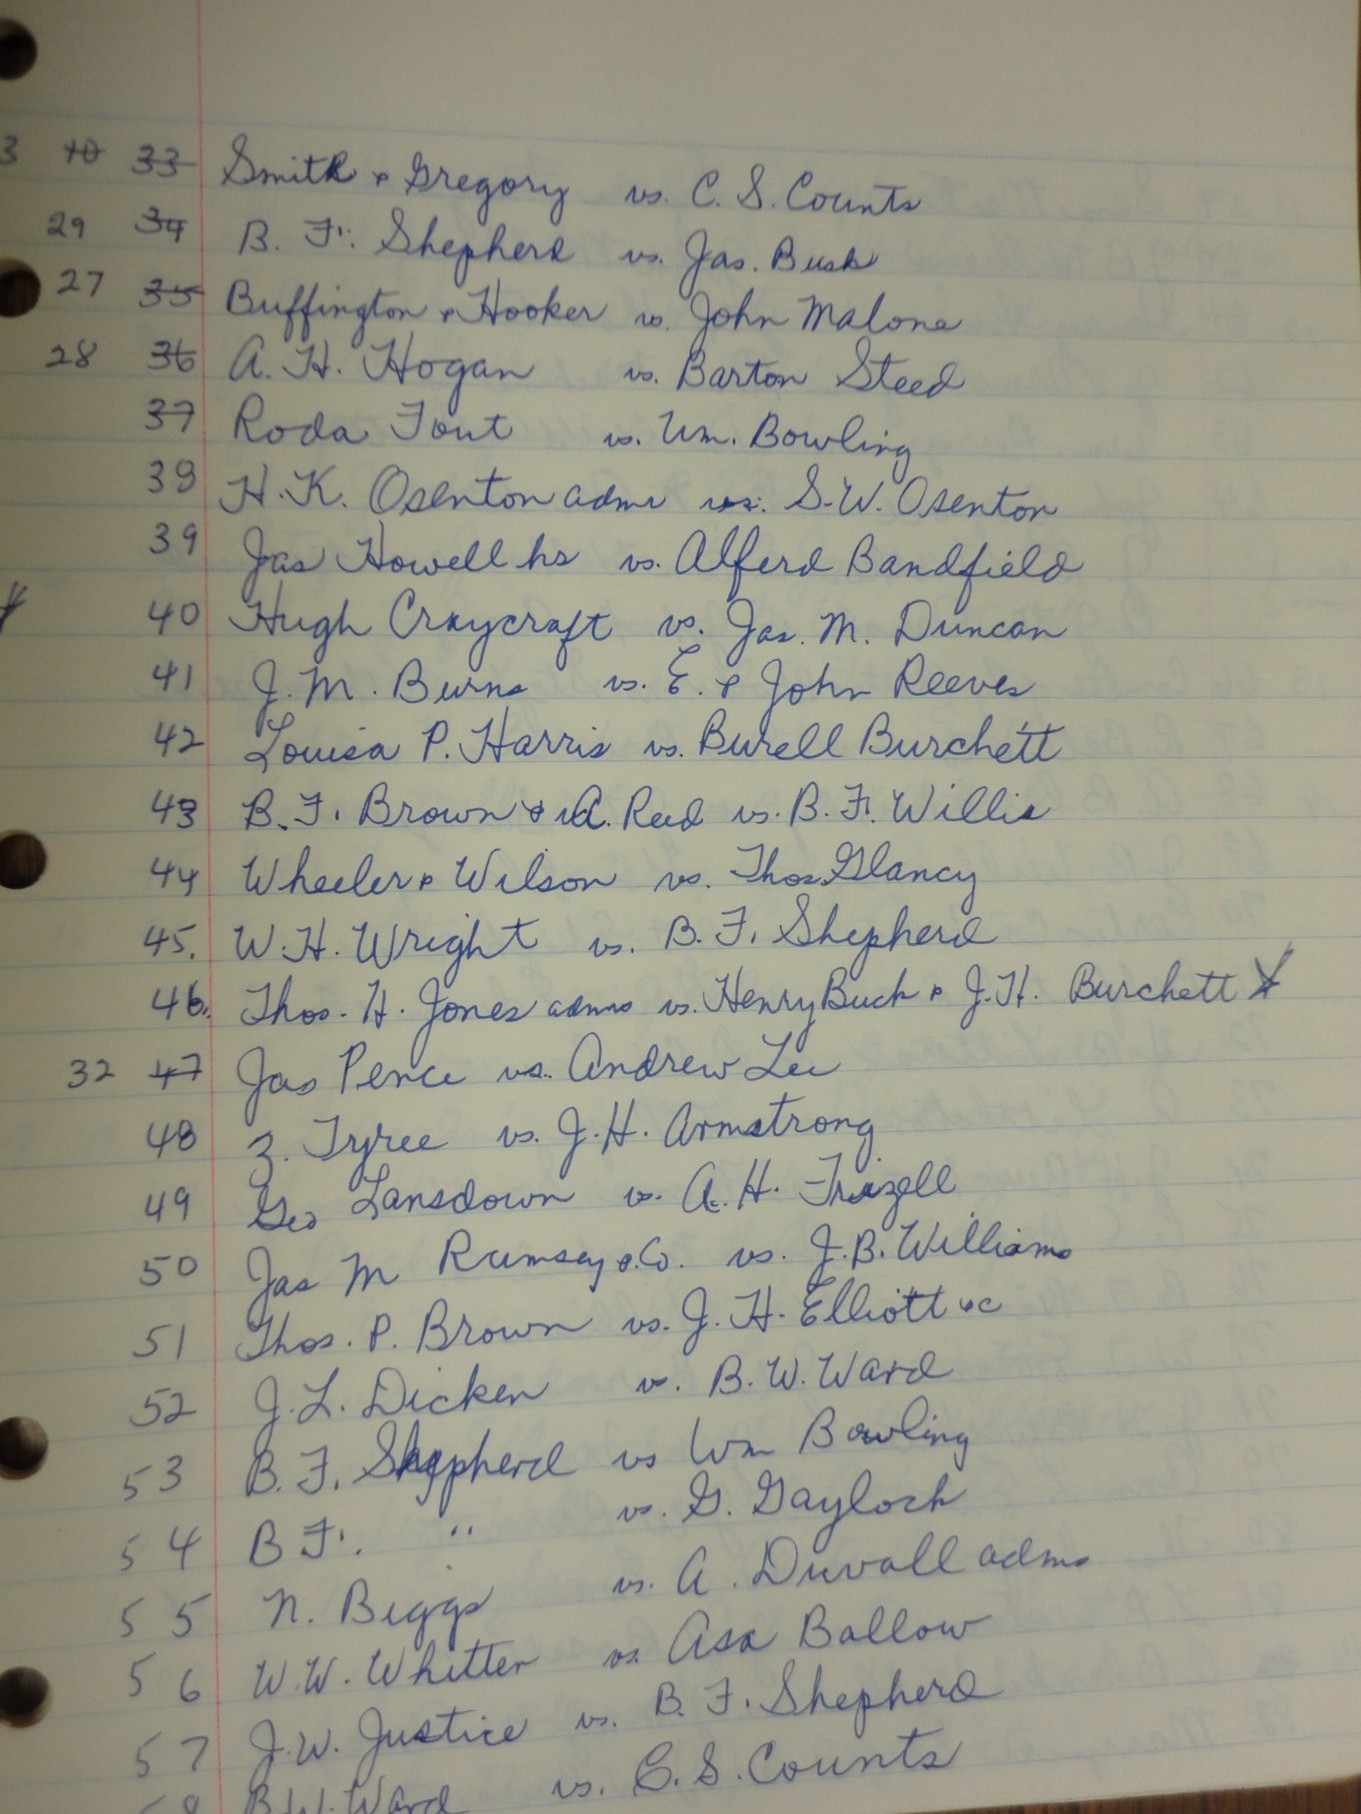 3 10 33 Smith & Gregory vs. C. S. Counts
29 34 B. F. Shepherd vs. Jas. Bush
27 35 Buffington & Hooker vs. John Malone
28 36 A. H. Hogan vs. Barton Steed
37 Roda Fout vs. Wm. Bowling
38 H. K. Osenton adms vs. S. W. Osenton
39 Jas Howell hs vs. Alferd Bandfield
40 Hugh Craycraft vs. Jas. M. Duncan
41 J. M. Burns vs. E. & John Reeves
42 Louisa P. Harris vs. Burell Burchett
43 B. F. Brown & A. Reed vs. B. F. Willis
44 Wheeler & Wilson vs. Thos. Glancy
45. W. H. Wright vs. B. F. Shepherd
46. Thos. H. Jones adms vs. Henry Buck & J. H. Burchett
32 47 Jas Pence vs. Andrew Lee
48 Z. Tyree vs. J. H. Armstrong
49 Geo Lansdown vs. A. H. Frizzell
50 Jas M Rumsey & Co. vs. J. B. Williams
51 Thos. P. Brown vs. J. H. Elliott &c
52 J. L. Dicken vs. B. W. Ward
53 B. F. Shepherd vs Wm Bowling
54 B F. " vs. G. Gaylock
55 N. Biggs vs. A. Duvall adms
56 W. W. Whitter vs. Asa Ballow
57 J. W. Justice vs. B. F. Shepherd
58 B. W. Ward vs. C. S. Counts